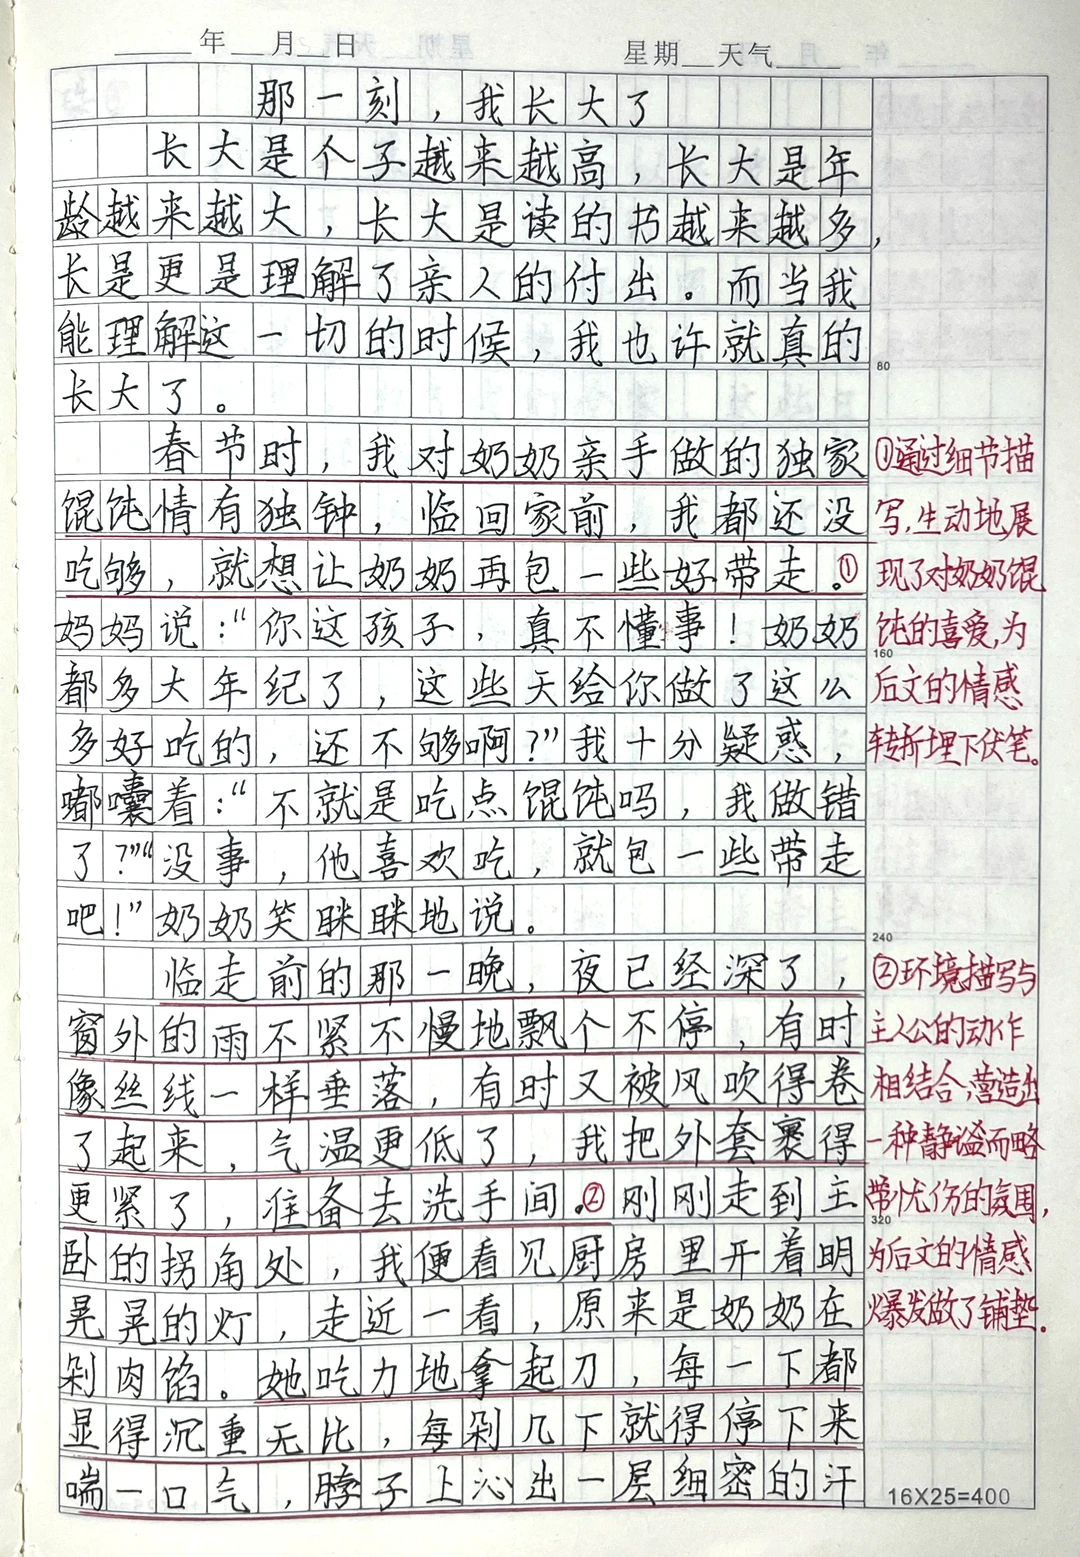 年 月 日 星期 天气
那一刻，我长大了
长大是个子越来越高，长大是年
龄越来越大，长大是读的书越来越多，
长是更是理解了亲人的付出。而当我
能理解这一切的时候，我也许就真的
80
长大了。
春节时，我对奶奶亲手做的独家
①通过细节描
馄饨情有独钟，临回家前，我都还没
写，生动地展
吃够，就想让奶奶再包一些好带走。①
现了对奶奶馄
妈妈说：“你这孩子，真不懂事！奶奶
饨的喜爱，为
160
都多大年纪了，这些天给你做了这么
后文的情感
多好吃的，还不够啊？”我十分疑惑，
转折埋下伏笔。
嘟囔着：“不就是吃点馄饨吗，我做错
了？”“没事，他喜欢吃，就包一些带走
吧！”奶奶笑眯眯地说。
240
临走前的那一晚，夜已经深了，
②环境描写与
窗外的雨不紧不慢地飘个不停，有时
主人公的动作
像丝线一样垂落，有时又被风吹得卷
相结合，营造出
了起来，气温更低了，我把外套裹得
一种静谧而略
更紧了，准备去洗手间。②刚刚走到主
带忧伤的氛围，
320
卧的拐角处，我便看见厨房里开着明
为后文的情感
晃晃的灯，走近一看，原来是奶奶在
爆发做了铺垫。
剁肉馅。她吃力地拿起刀，每一下都
显得沉重无比，每剁几下就得停下来
喘一口气，脖子上沁出一层细密的汗
16X25=400